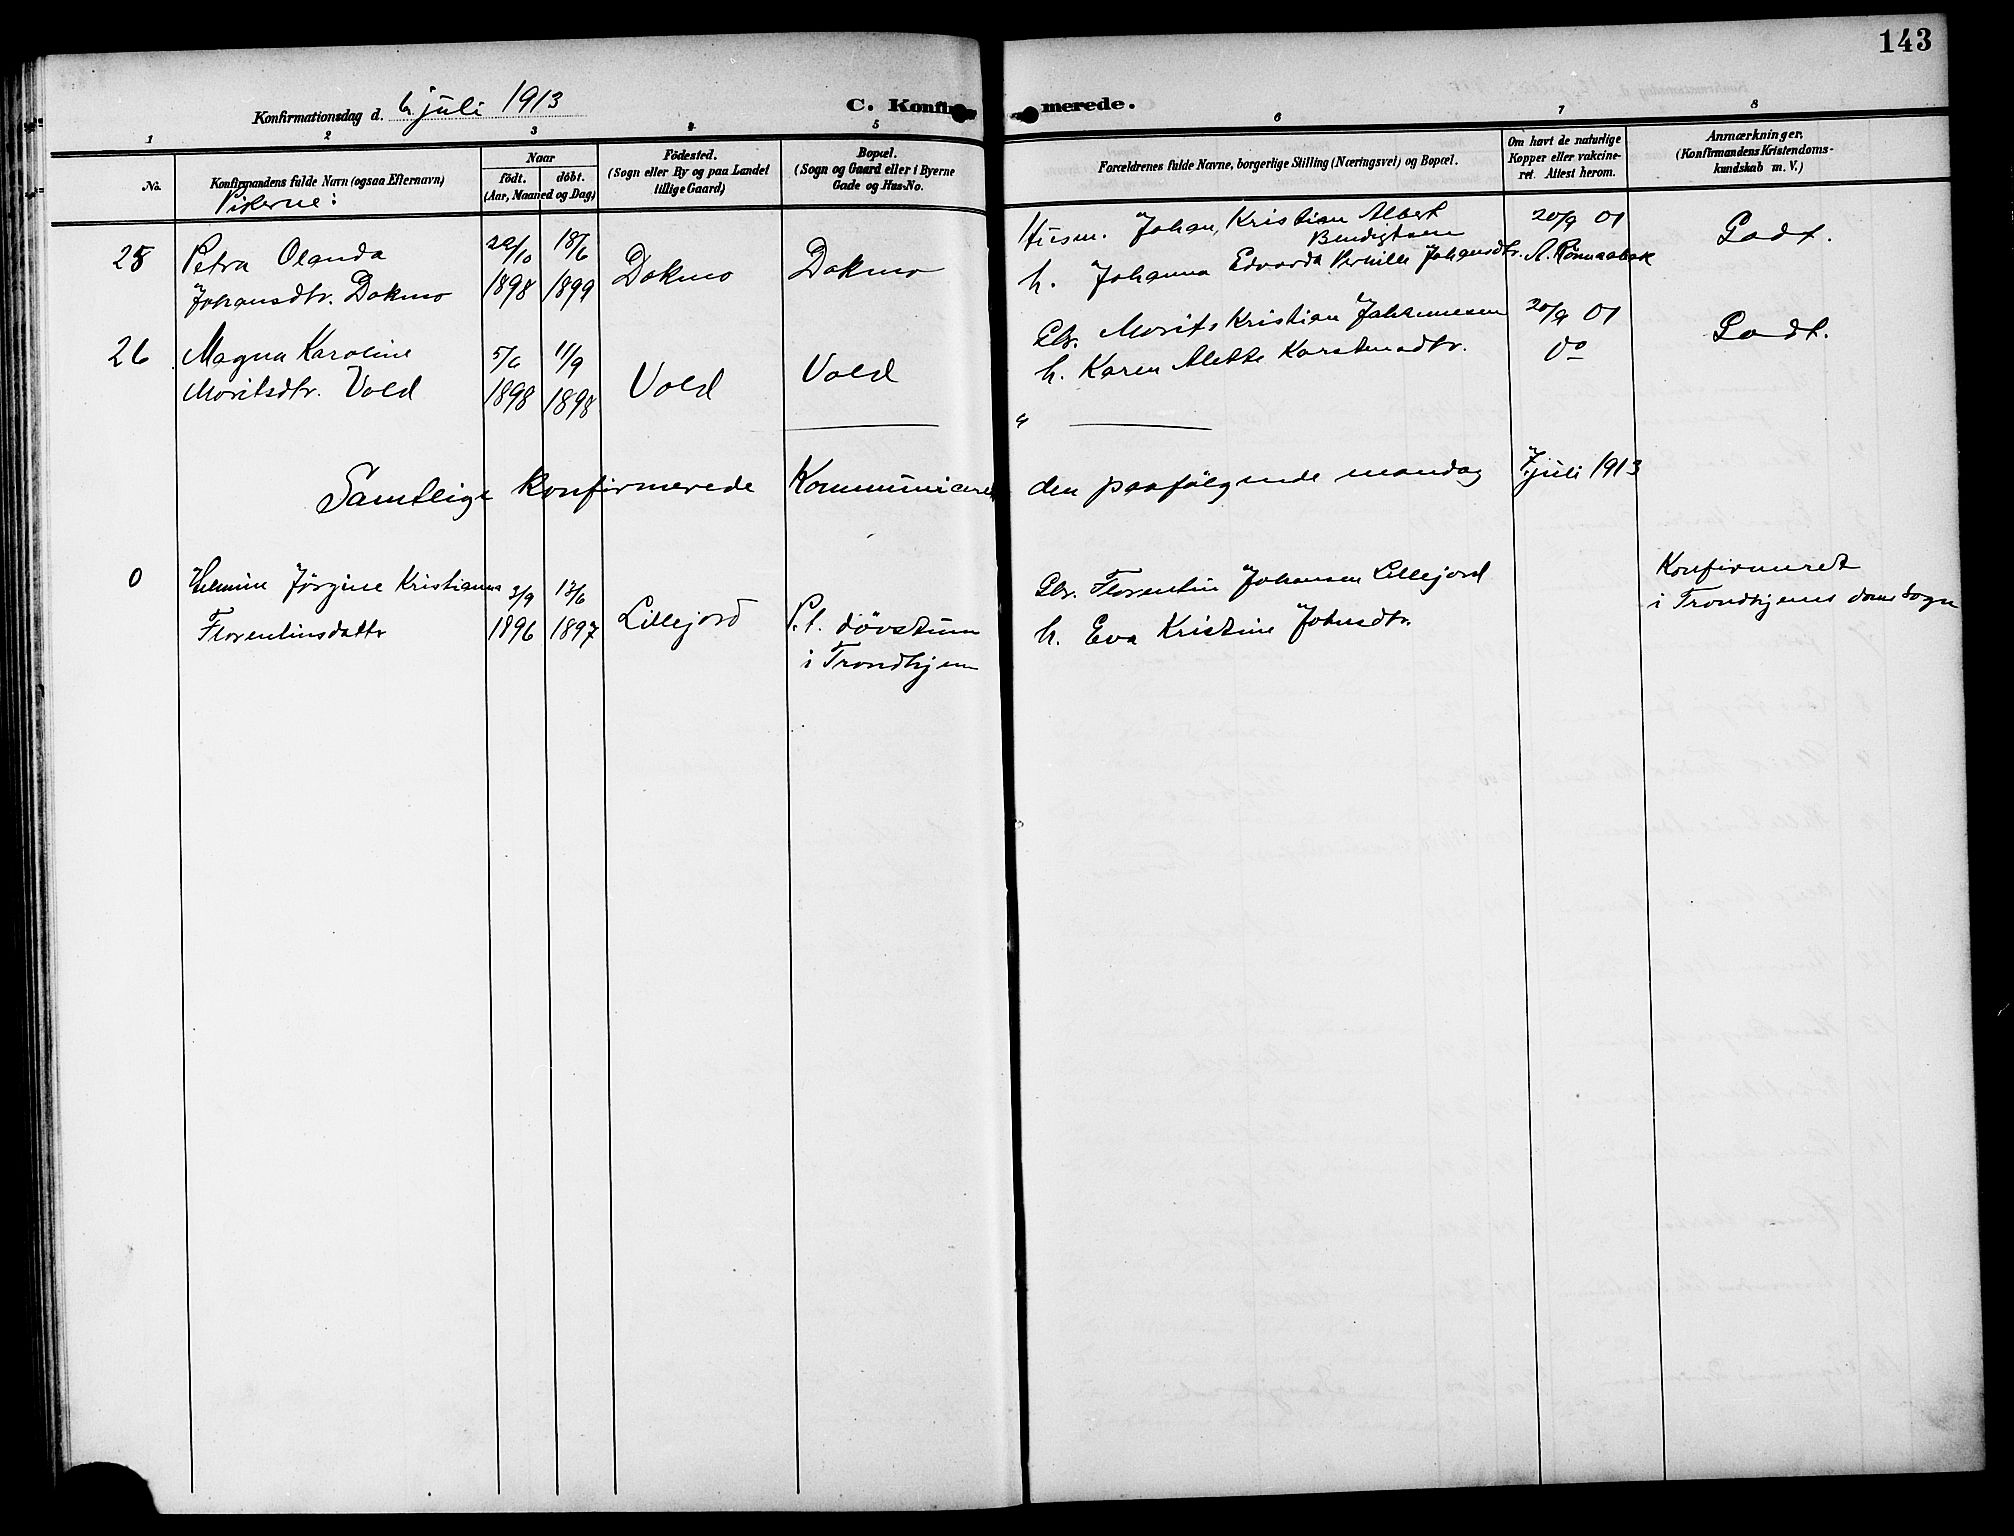 143
Konfirmationsdag d. 6. juli 1913
C. Konfirmerede.
1 2 3 4 5 6 7 8
No.
Konfirmandens fulde Navn (ogsaa Efternavn)
Naar
født. døbt.
(Aar, Maaned og Dag)
Födested.
(Sogn eller By og paa Landet
tillige Gaard)
Bopæl.
(Sogn og Gaard eller i Byerne
Gade og Hus-No.
Forældrenes fulde Navne, borgerlige Stilling (Næringsvei) og Bopæl.
Om havt de naturlige
Kopper eller vakcine-
ret. Attest herom.
Anmærkninger.
(Konfirmandens Kristendoms-
kundskab m. V.)
Pikerne:
25 Petra Olanda
Johansdtr. Dokmo
29/10 1898
18/6 1899
Dokmo
Dokmo
Husm. Johan Kristian Albert
Bendigtsen
h. Johanna Edvarda Pernille Johansdtr.
20/9 01
A. Rønnaabak
Godt.
26 Magna Karoline
Moritsdtr. Vold
5/6 1898
11/9 1898
Vold
Vold
Gbr. Morits Kristian Johannesen
h. Karen Alette Karstensdtr.
20/9 01
do
Godt.
"
Samtlige konfirmerede kommunicerte den paafölgende mandag 7. juli 1913
0 Helmine Jörgine Kristianna
Florentinsdattr
3/9 1896
13/6 1897
Lillejord
P.t. dövstum
i Trondhjem
Gbr. Florentin Johansen Lillejord
h. Eva Kristine Johnsdtr.
Konfirmeret
i Trondhjems domsogn